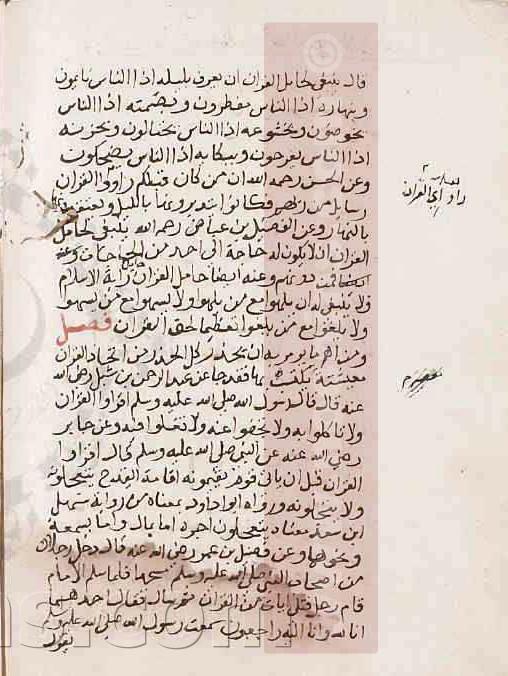 قال ينبغى لحامل القران ان يعرف بليله اذا الناس نايمون
وبنهاره اذا الناس مفطرون وبصمته اذا الناس
يخوضون وبخشوعه اذا الناس يختالون وبحزنه
اذا الناس يفرحون وببكايه اذا الناس يضحكون
وعن الحسن رحمه الله ان من كان قبلكم راوا القران
رسايل من ربهم فكانوا يتدبرونها بالليل
بالنهار وعن الفضيل بن عياض رحم الله ينبغى لحامل
القران ان لا يكون له حاجة الى احد من
دونهم وعنه ايضا حامل القران راية الاسلام
ولا ينبغى له ان يلهوا مع من يلهوا ولا يسهوا مع من يسهو
ولا يلغوا مع من يلغوا تعظيما لحق القران فصل
ومن اهم ما يومر به ان يحذر كل الحذر من اتخاذ القران
معيشة يكتسب بها فقد جا عن عبد الرحمن بن شبل رضى الله
عنه قال قال رسول الله صلى الله عليه وسلم اقراوا القران
ولا تاكلوا به ولا تجفوا عنه ولا تغلوا فيه وعن جابر
رضى الله عنه عن النبى صلى الله عليه وسلم قال اقراوا
القران قبل ان ياتى قوم يقيمونه اقامة القدح يتعجلونه
ولا يتاجلونه ورواه ابو داود بمعناه من رواية سهل
ابن سعد معناه يتعجلون اجره اما بمال واما بسمعة
ونحوها وعن فضيل بن عمرو رضى الله عنه قال دخل رجلان
من اصحاب النبى صلى الله عليه وسلم مسجدا فلما سلم الامام
قام رجل فتلى ايات من القران ثم سال فقال احدهما
انا لله وانا اليه راجعون سمعت رسول الله صلى الله عليه وسلم
يقول